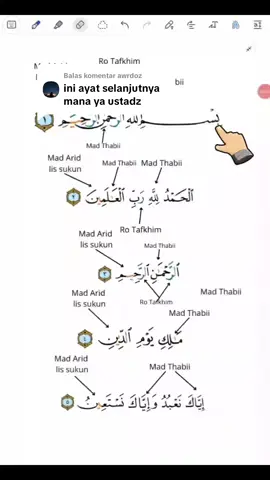 Ro Tafkhim
Balas komentar awrdoz
ini ayat selanjutnya
mana ya ustadz
bii
بِسْمِ اللهِ الرَّحْمٰنِ الرَّحِيْمِ ١
Mad Thabii
Mad Arid
lis sukun
Mad Thabii
Mad Thabii
الْحَمْدُ لِلَّهِ رَبِّ الْعَالَمِينَ ٢
Ro Tafkhim
Mad Arid
lis sukun
Mad Thabii
الرَّحْمَٰنِ الرَّحِيمِ ٣
Ro Tafkhim
Mad Arid
lis sukun
Mad Thabii
Mad Thabii
مَٰلِكِ يَوْمِ الدِّينِ ٤
Mad Arid
lis sukun
Mad Thabii
إِيَّاكَ نَعْبُدُ وَإِيَّاكَ نَسْتَعِينُ ٥